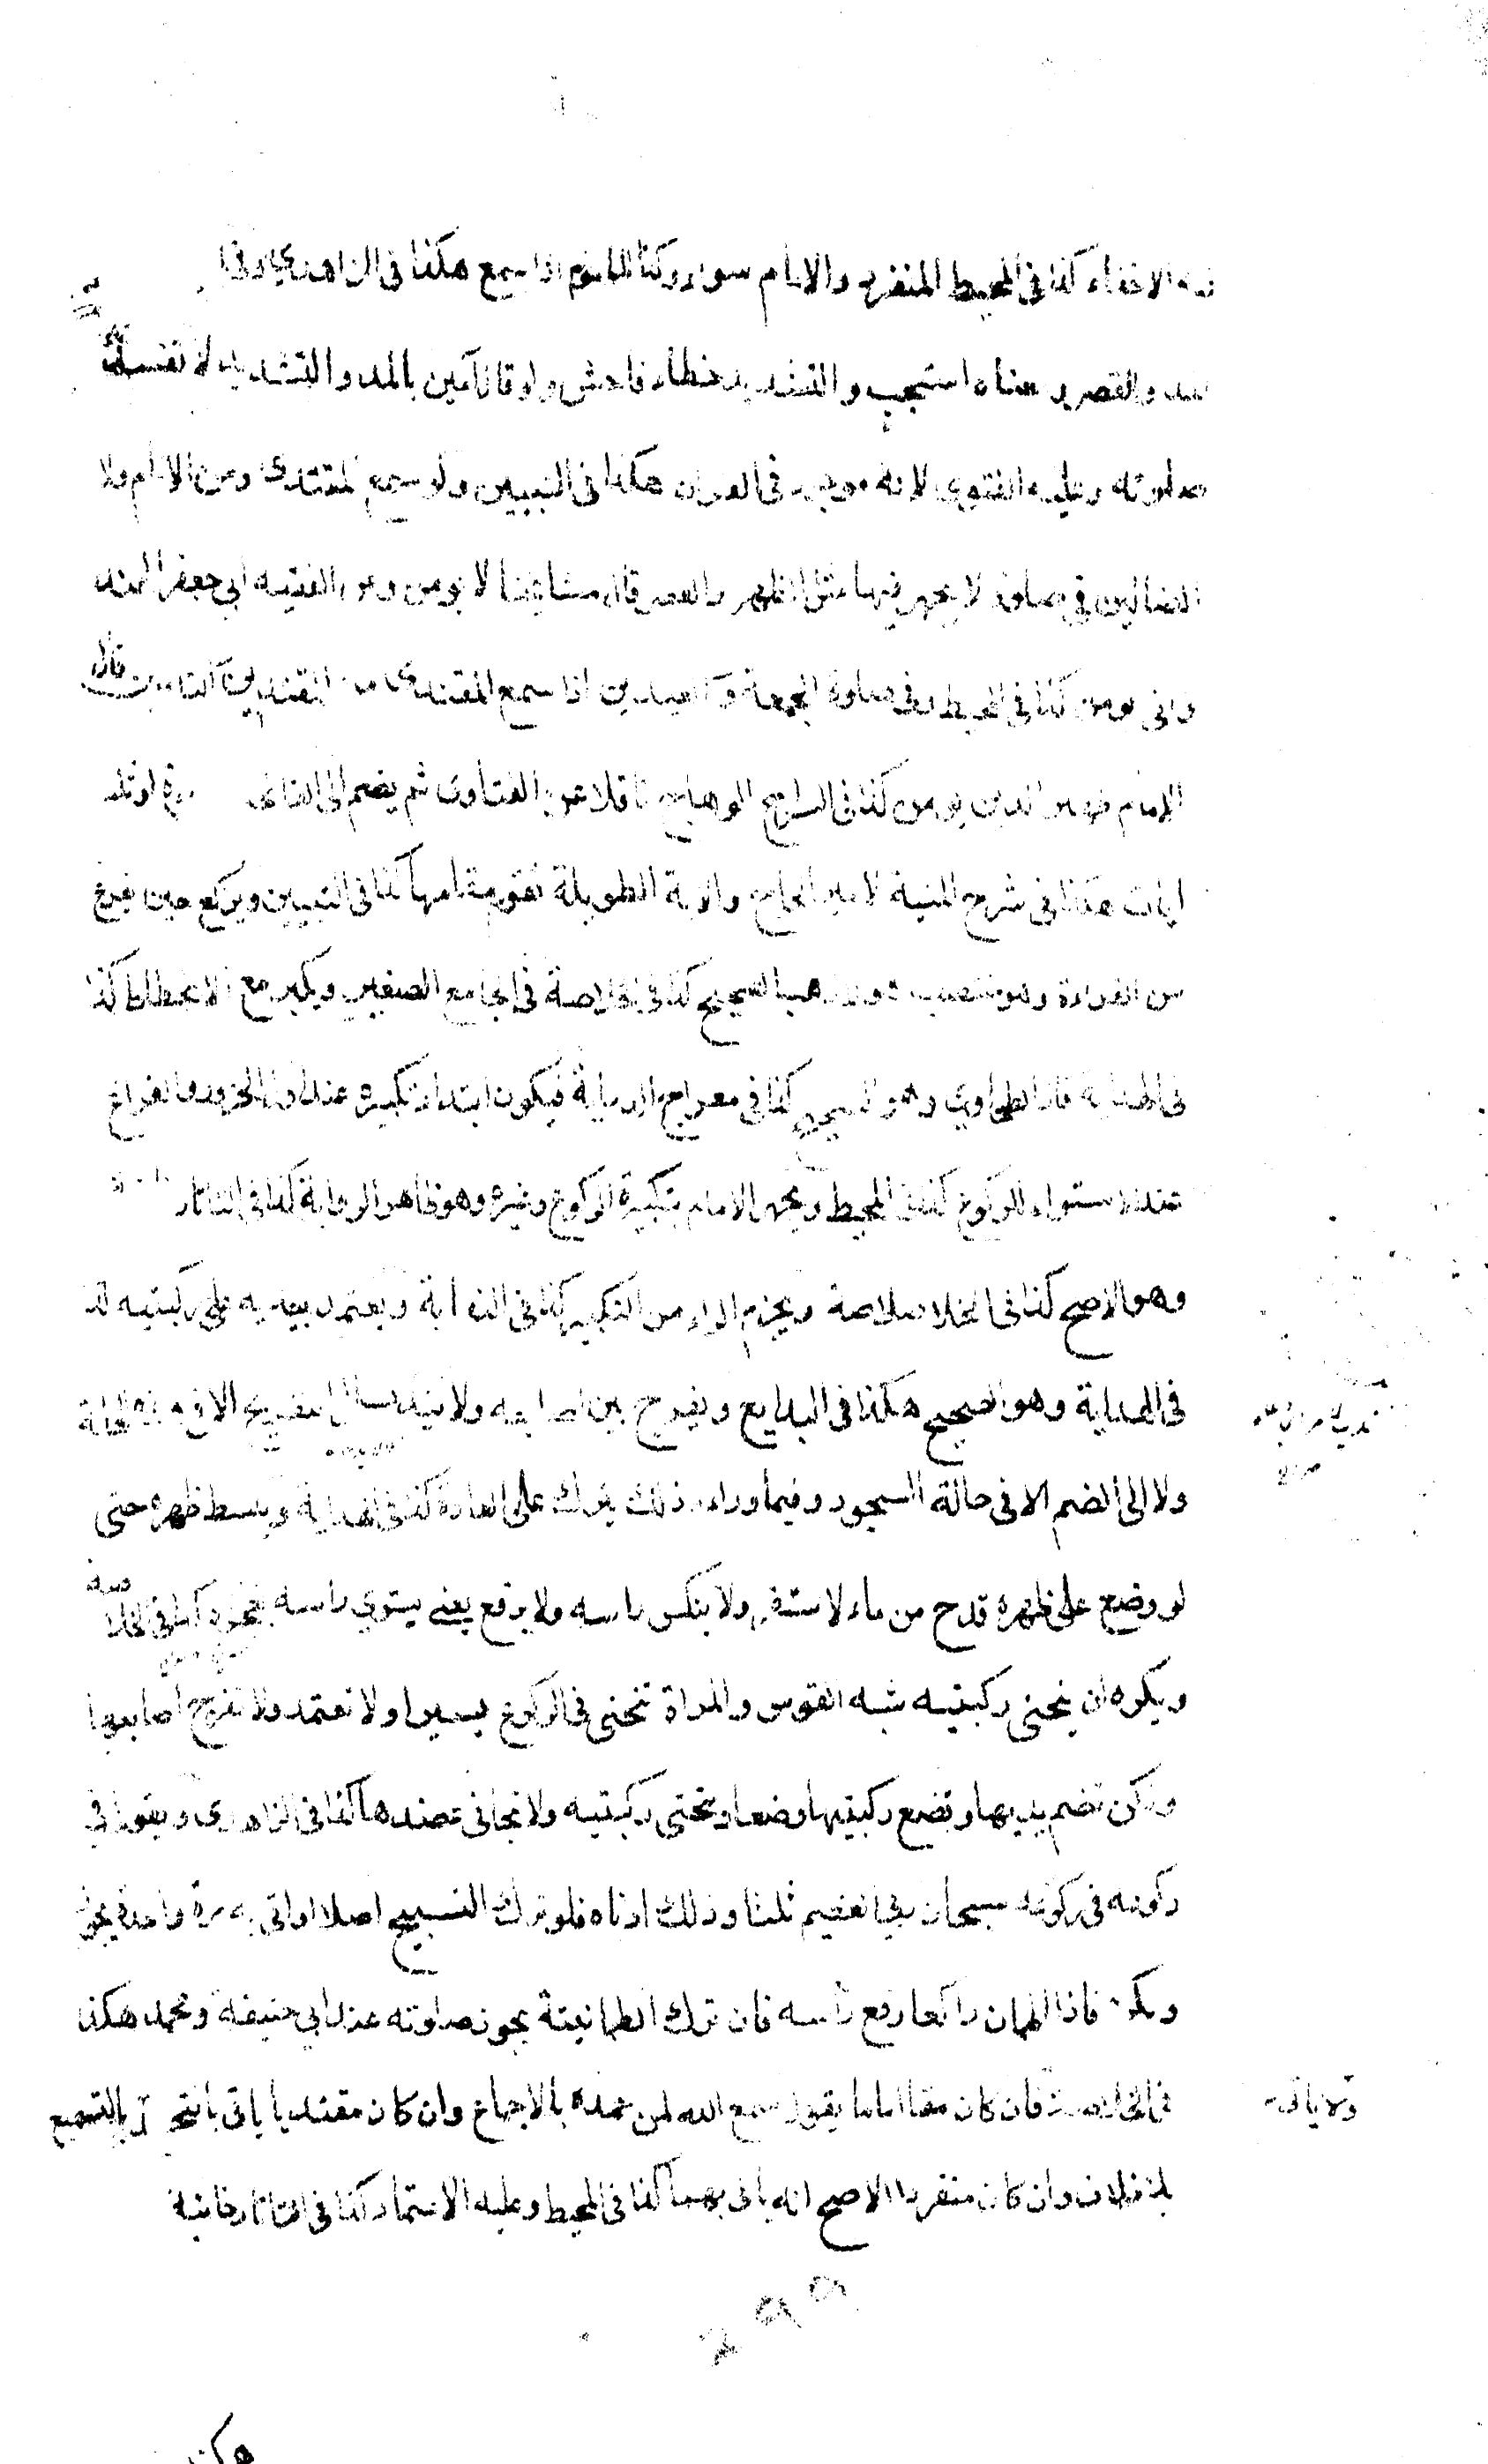 الاخفاء كذا فى المحيط المنفرد والامام سواء وكذا الماموم اذا سمع هكذا فى الزاهدي وفى
والقصر ومعناه استجب والتشديد خطاء فاحش ولو قال آمين بالمد والتشديد لا تفسد
صلوته وعليه الفتوى لانه موجود فى القران هكذا فى التبيين ولو سمع المقتدى من الامام ولا
الضالين في صلوة لا يجهر فيها مثل الظهر والعصر قال مشايخنا لا يومن وعن الفقيه ابي جعفر الهند
وانى يومن كذا فى المحيط وفى صلوة الجمعة والعيدين اذا سمع المقتدى من المقتدين التامين قال
الامام ظهير الدين يومن كذا فى السراج الوهاج ناقلا عن الفتاوى ثم يضم الى الفاتحة اوثلث
ايات هكذا فى شرح المنية لامير الحاج والاية الطويلة تقوم مقامها كذا فى التبيين ويركع حين يفرغ
من القراءة وهو منتصب هو المذهب الصحيح كذا فى الخلاصة فى الجامع الصغير ويكبر مع الانحطاط كذا
فى الهداية قال الطحاوي وهو الصحيح كذا فى معراج الدراية فيكون ابتداء تكبيره عند اول الخرور والفراغ
عند الاستواء للركوع كذا فى المحيط ويجهر الامام بتكبيرة الركوع وغيره وهو ظاهر الرواية كذا فى التاتار
وهو الاصح كذا فى الخلا صلاصة ويجزم الراء من التكبير كذا فى النهاية ويعتمد بيديه على ركبتيه كذ
فى الهداية وهو الصحيح هكذا فى البدايع ويفرج بين اصابعه ولا يندب الى تفريج الا فى هذه الحالة
ولا الى الضم الا فى حالة السجود وفيما وراء ذلك يترك على العادة كذا فى الهداية ويبسط ظهره حتى
لو وضع على ظهره قدح من ماء لاستقر ولا ينكس راسه ولا يرفع يعنى يستوي راسه بعجزه كذا فى الخلا
صة
ويكره ان يحنى ركبتيه شبه القوس والمراة تنحنى فى الركوع يسيرا ولا تعتمد ولا تفرج اصابعها
ولكن تضم يديها وتضع ركبتيها وضعا وتحنى ركبتيه ولا تجافى عضدها كذا فى الزاهدى ويقول فى
ركوعه فى ركوعه سبحان ربي العظيم ثلثا وذلك ادناه فلو ترك التسبيح اصلا او اتى به مرة واحدة يجوز
ويكره فاذا اطمان راكعا رفع راسه فان ترك الطمانينة يجوز صلوته عند ابي حنيفة ومحمد هكذا
فى الخلاصة فان كان اماما يقول سمع الله لمن حمده بالاجماع وان كان مقتديا ياتى بالتحميد بالتسميع
ولا ياتى
بلا خلاف وان كان منفردا الاصح انه ياتى بهما كذا فى المحيط وعليه الاعتماد كذا فى التاتارخانية
هكذ